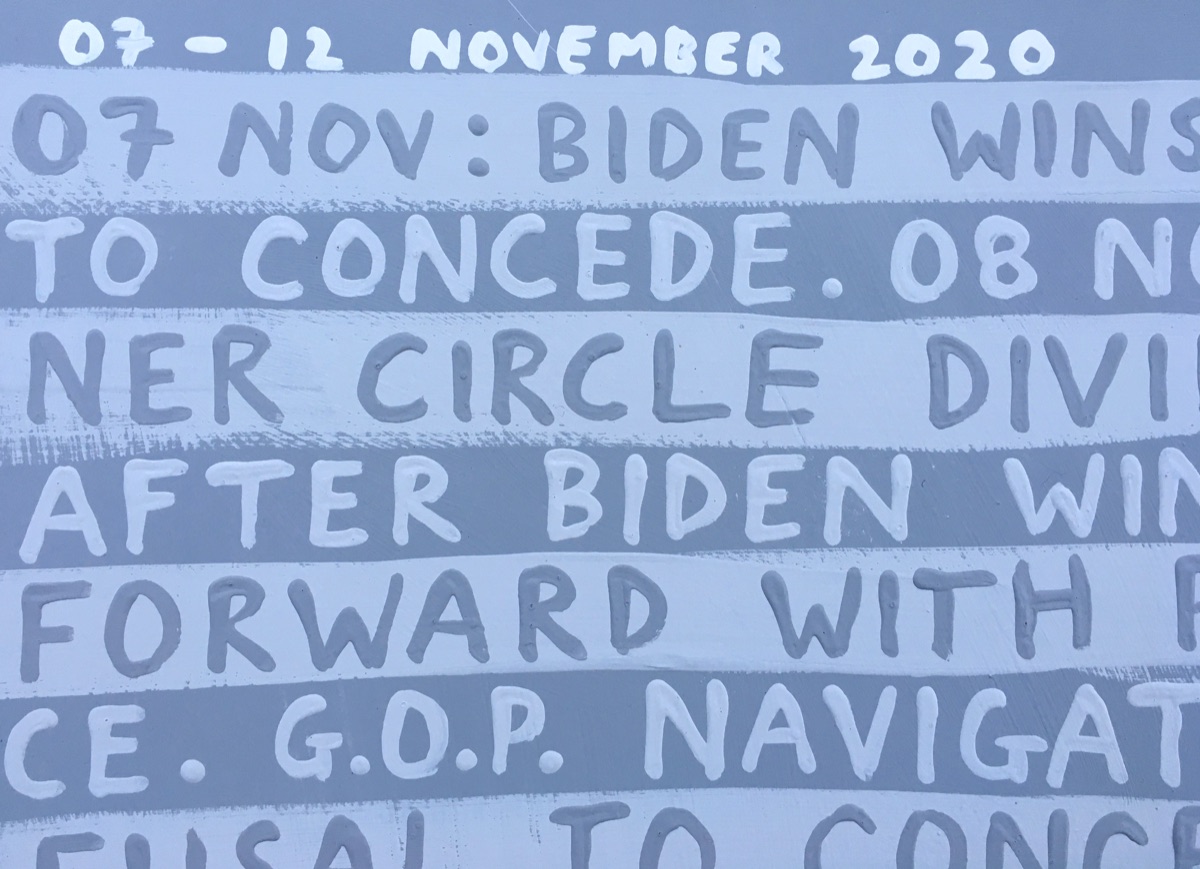 07 - 12 NOVEMBER 2020
07 NOV: BIDEN WINS
TO CONCEDE. 08 NO
NER CIRCLE DIVI
AFTER BIDEN WIN
FORWARD WITH
CE. G.O.P. NAVIGAT
TO CONCE